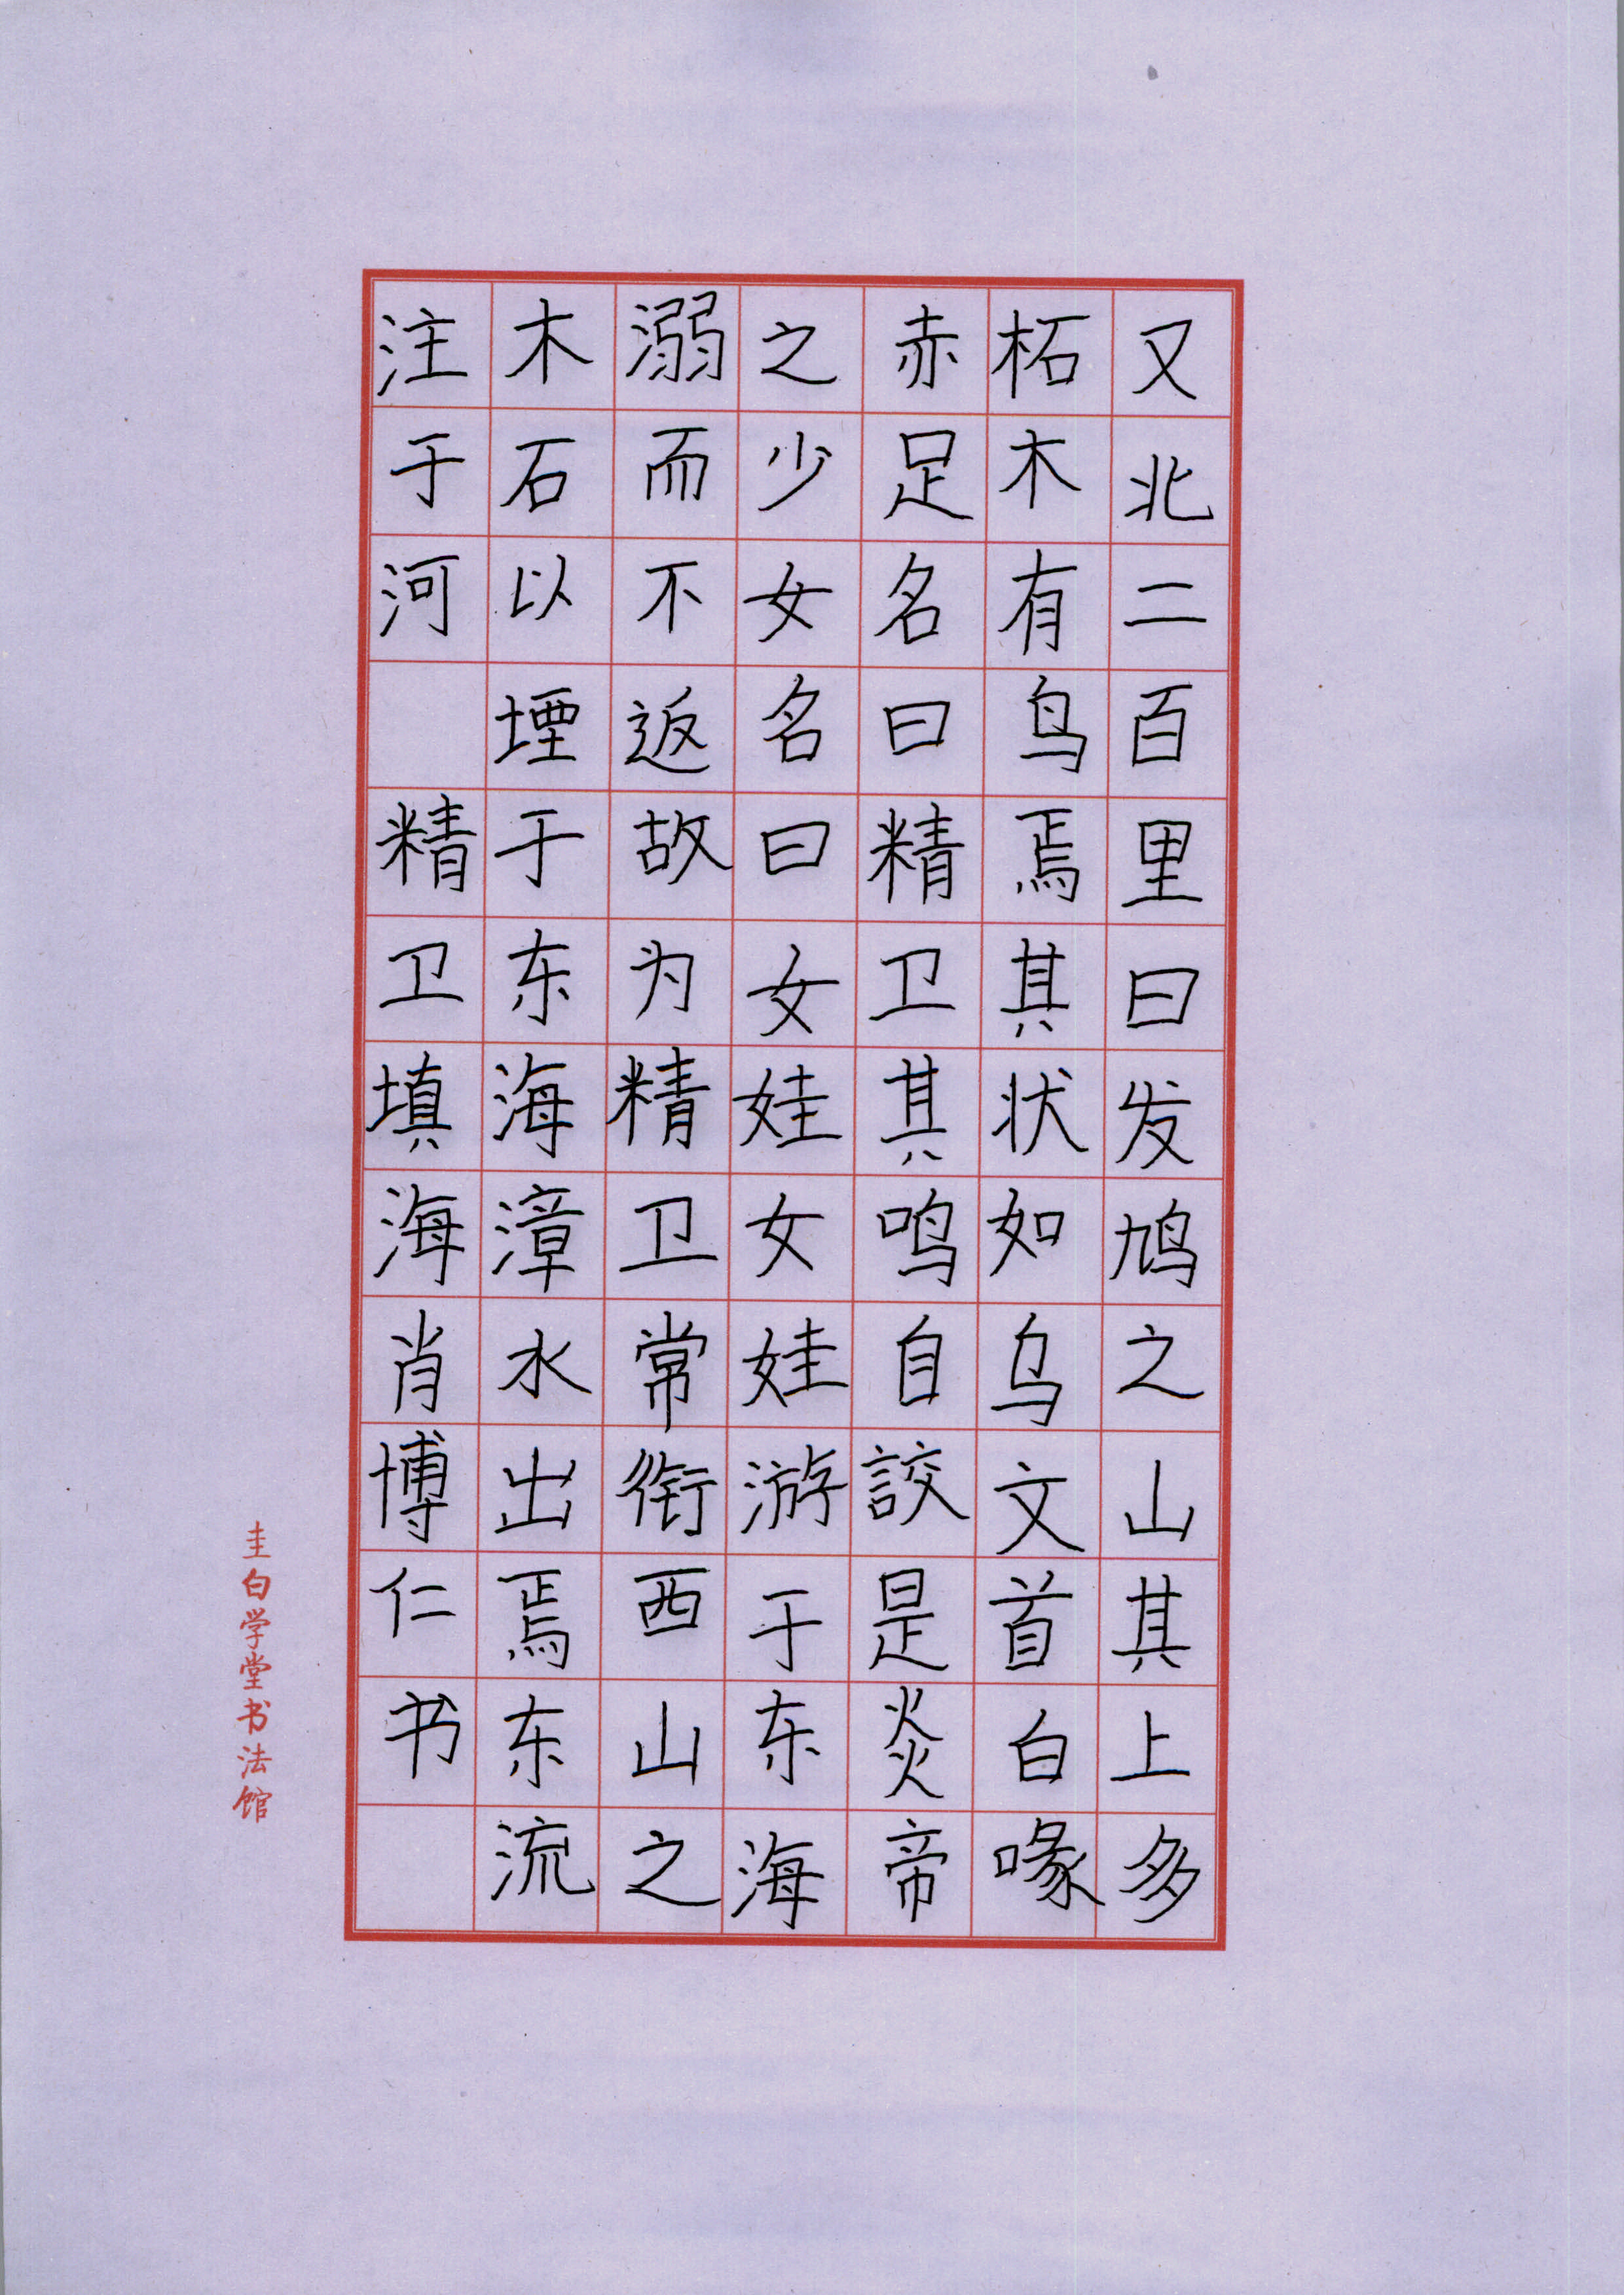 又北二百里曰发鸠之山其上多
柘木有鸟焉其状如乌文首白喙
赤足名曰精卫其鸣自詨是炎帝
之少女名曰女娃女娃游于东海
溺而不返故为精卫常衔西山之
木石以堙于东海漳水出焉东流
注于河 精卫填海肖博仁书
圭白学堂书法馆